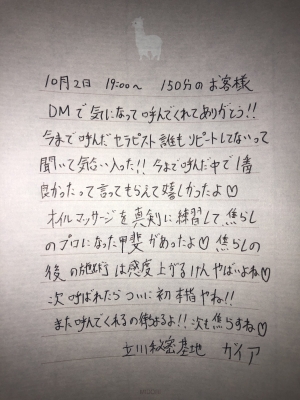 10月2日 19:00〜 150分のお客様
DMで気になって呼んでくれてありがとう!!
今まで呼んだセラピスト誰もリピートしてないって
聞いて気合い入った!! 今まで呼んだ中で1番
良かったって言ってもらえて嬉しかったよ♡
オイルマッサージを真剣に練習して焦らし
のプロになった甲斐があったよ♡ 焦らしの
後の施術は感度上がるけんやばいよね♡
次呼ばれたらついに初本指やね!!
また呼んでくれるの待ちよるよ!! 次も焦らすね♡
立川秘密基地 ガイア